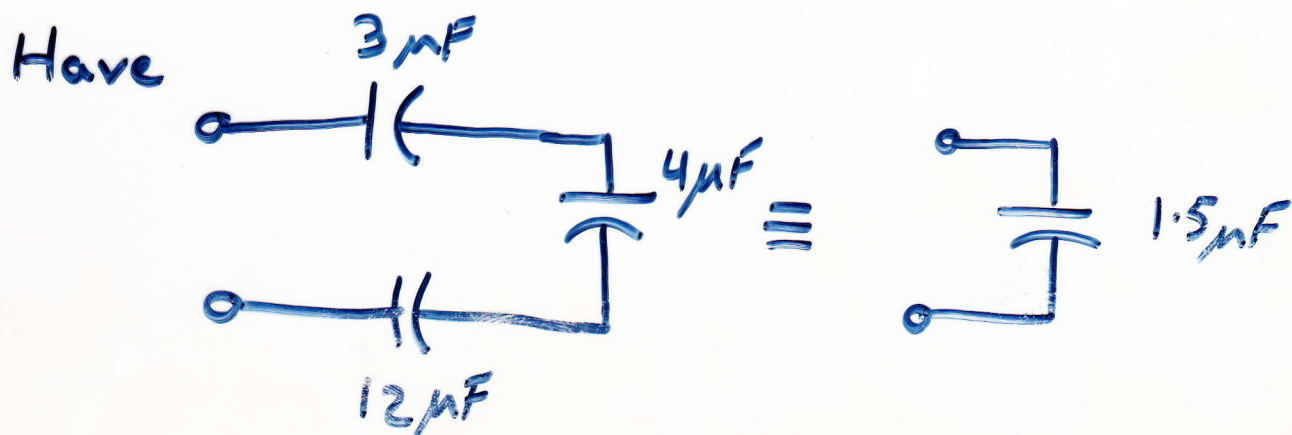 Have
3 μF
4μF
≡
1.5μF
12μF